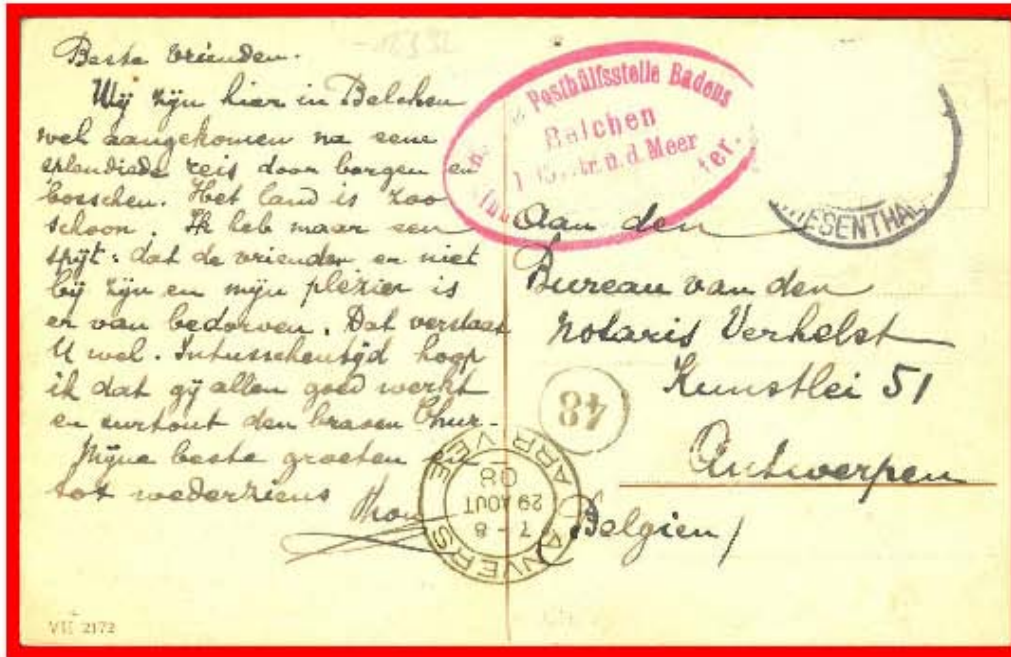 Beste vrienden.
Wij zijn hier in Belchen
wel aangekomen na eene
splendiede reis door bergen en
bosschen. Het land is zoo
schoon. Ik heb maar een
spijt: dat de vrienden er niet
bij zijn en mijn plezier is
er van bedorven. Dat verstaat
U wel. Intusschentijd hoop
ik dat gij allen goed werkt
en surtout den braven
Mijne beste groeten en
tot wederziens
Posthülfsstelle Badens
Belchen
ü. d. Meer
WIESENTHAL
Aan den
Bureau van den
Notaris Verhelst
Kunstlei 51
Antwerpen
Belgien
48
ANVERS
7-8
29 AOUT
08
ARRIVEE
VII 2172